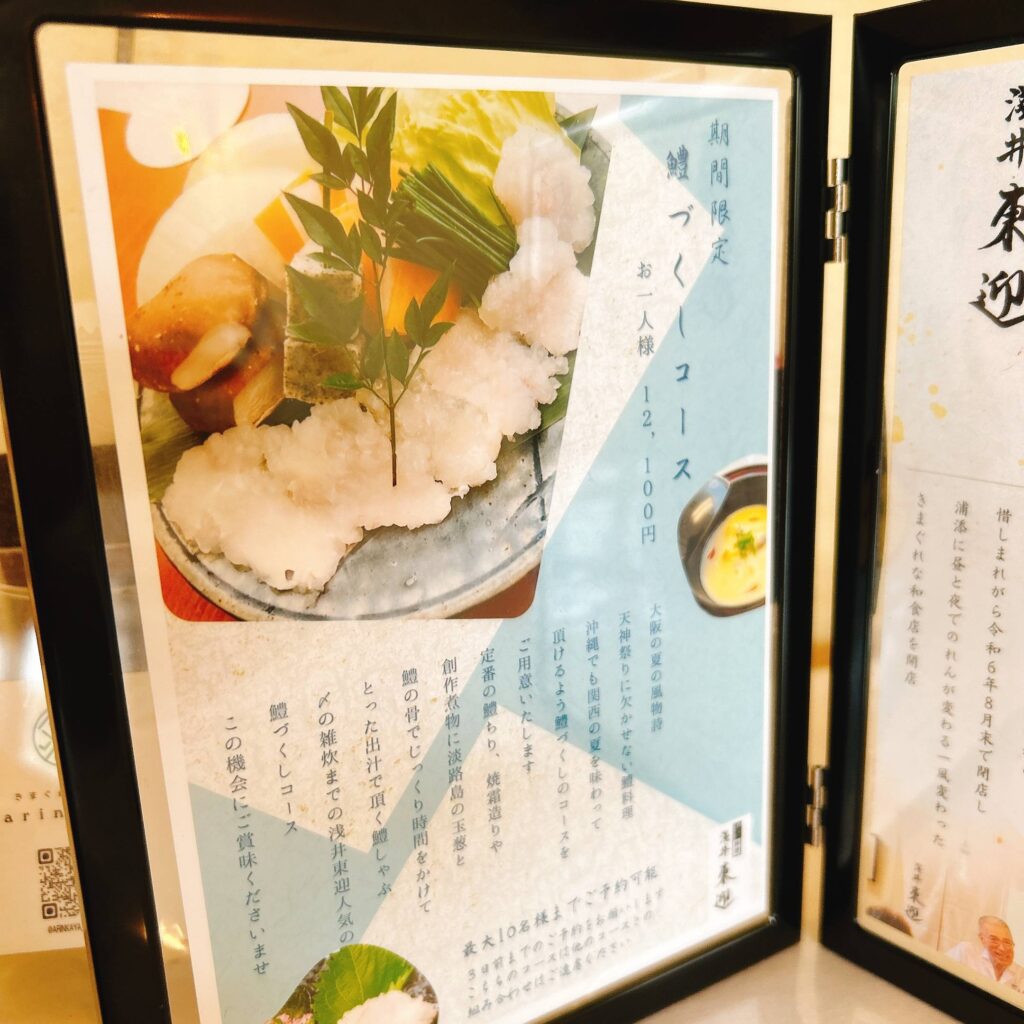 期間限定
鱧づくしコース
お一人様 12,100円
大阪の夏の風物詩
天神祭りに欠かせない鱧料理
沖縄でも関西の夏を味わって
頂けるよう鱧づくしのコースを
ご用意いたします
定番の鱧ちり、焼霜造りや
創作煮物に淡路島の玉葱と
鱧の骨でじっくり時間をかけて
とった出汁で頂く鱧しゃぶ
〆の雑炊までの浅井東迎人気の
鱧づくしコース
この機会にご賞味くださいませ
最大10名様までご予約可能
3日前までのご予約をお願いします
こちらのコースは他のコースとの
組み合わせはご遠慮ください
浅井東迎
浅井東迎
惜しまれがら令和6年8月末で閉店し
浦添に昼と夜でのれんが変わる一風変わった
きまぐれな和食店を開店
浅井東迎
きまぐ
arin
@ARINKAYA